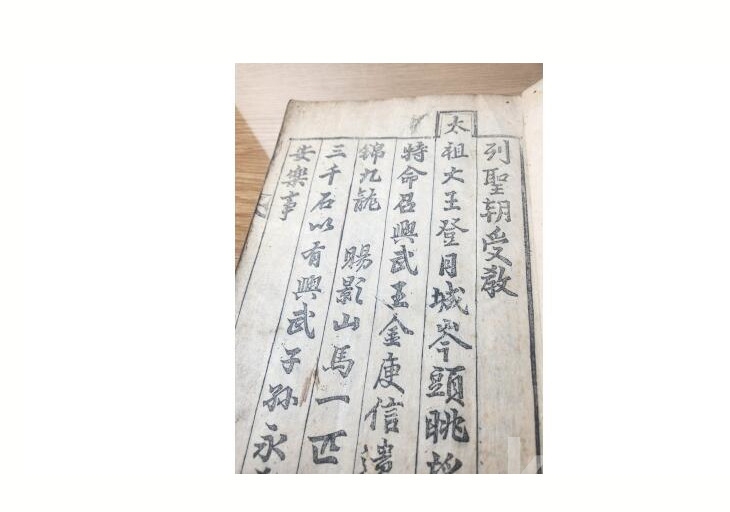 列聖朝受敎
太祖大王登月城岑頭眺
特命召興武王金庾信遺
錦九龍 賜影山馬一匹
三千石以有興武子孫永
安樂事